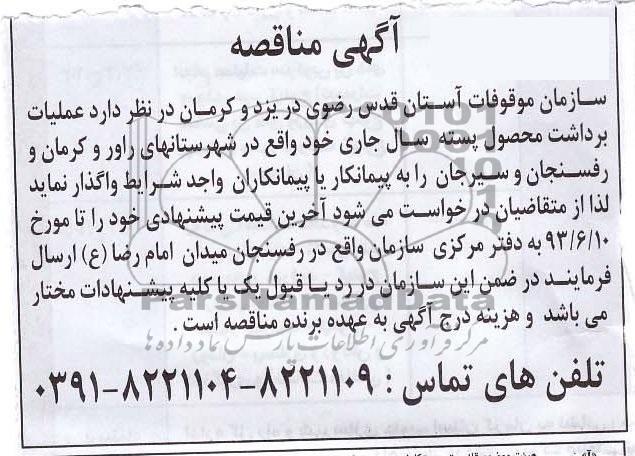 آگهی مناقصه
سازمان موقوفات آستان قدس رضوی در یزد و کرمان در نظر دارد عملیات
برداشت محصول پسته سال جاری خود واقع در شهرستانهای راور و کرمان و
رفسنجان و سیرجان را به پیمانکار یا پیمانکاران واجد شرایط واگذار نماید
لذا از متقاضیان درخواست می شود آخرین قیمت پیشنهادی خود را تا مورخ
۹۳/۶/۱۰ به دفتر مرکزی سازمان واقع در رفسنجان میدان امام رضا (ع) ارسال
فرمایند در ضمن این سازمان در رد یا قبول یک یا کلیه پیشنهادات مختار
ParsNamadData
می باشد و هزینه درج آگهی به عهده برنده مناقصه است .
مرکز فرآوری اطلاعات پارس نماد داده ها
تلفن های تماس : ۸۲۲۱۱۰۹-۸۲۲۱۱۰۴-۰۳۹۱